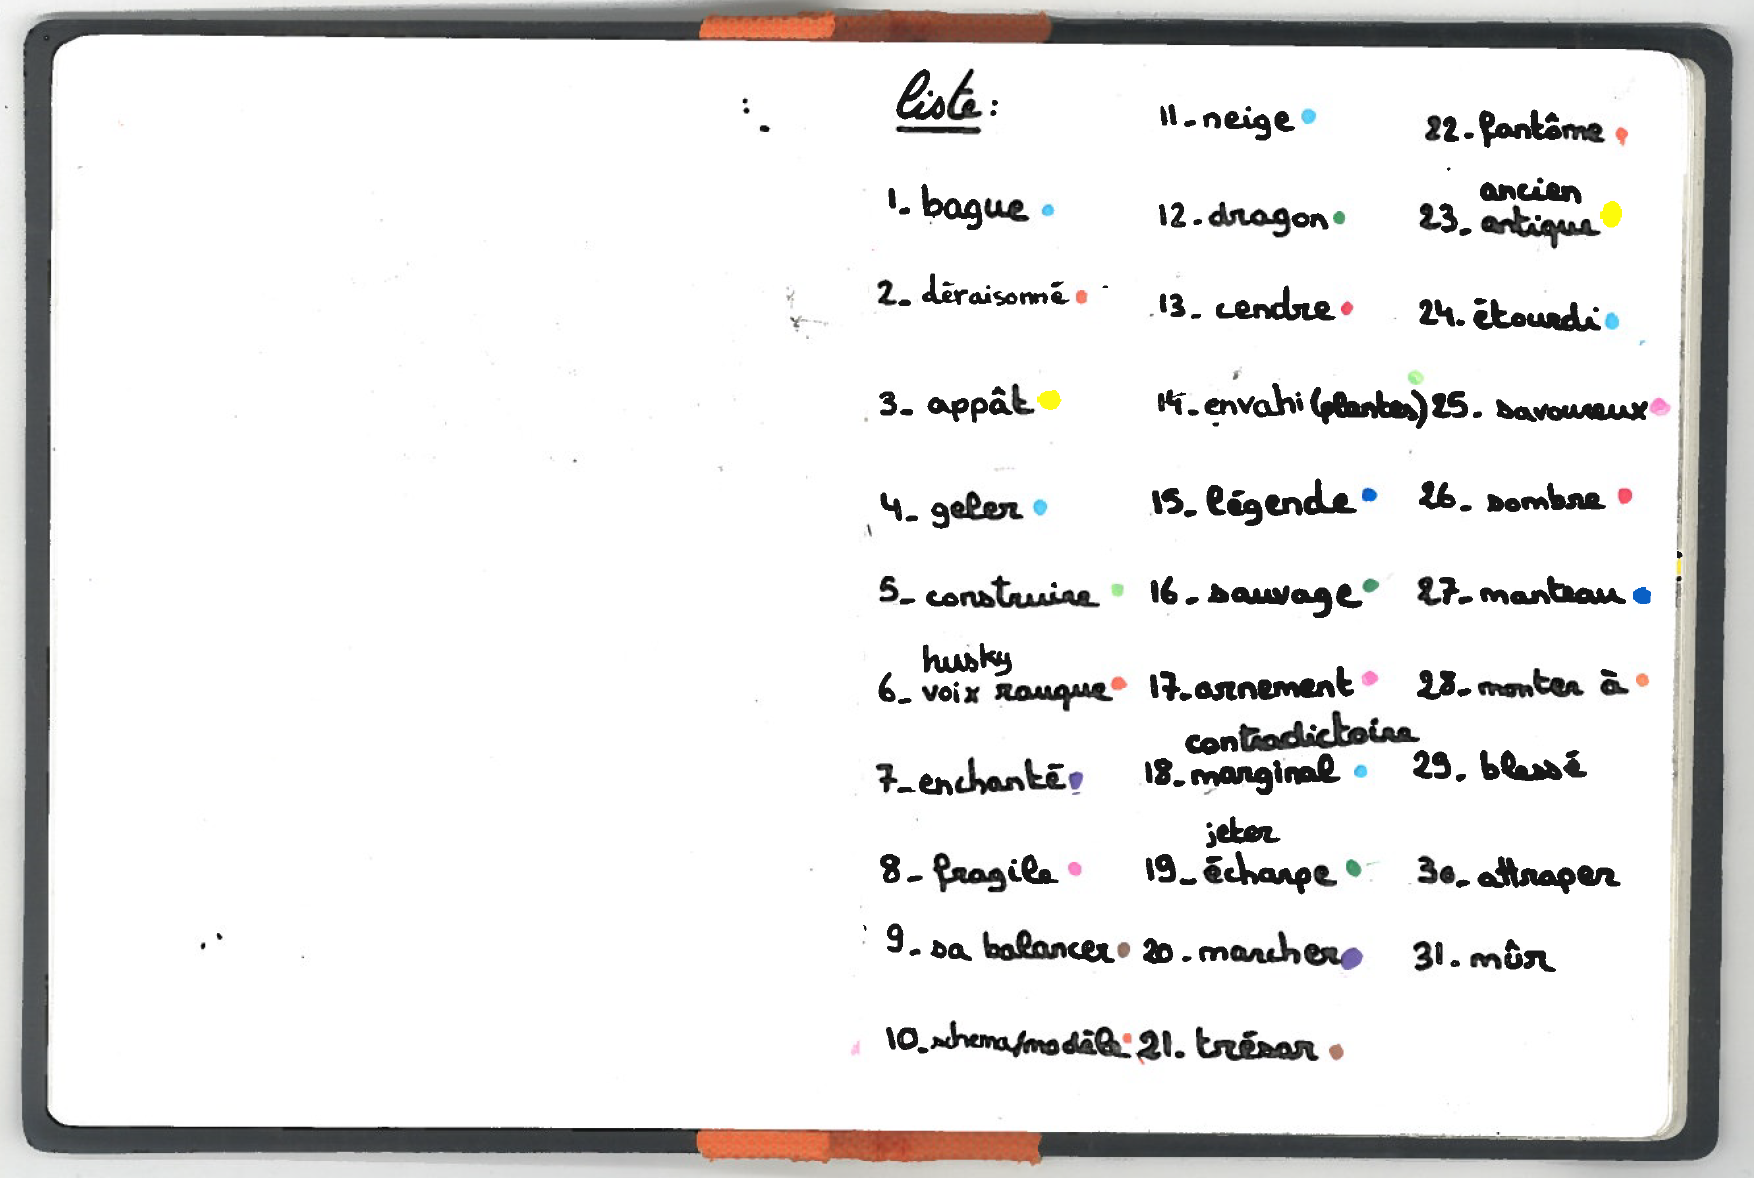 liste:
1. bague
2. déraisonné
3. appât
4. geler
5. construire
husky
6. voix rauque
7. enchanté
8. fragile
9. sa balancer
10. schema/modèle
11. neige
12. dragon
13. cendre
14. envahi (plantes)
15. légende
16. sauvage
17. ornement
contradictoire
18. marginal
jeter
19. écharpe
20. marcher
21. trésor
22. fantôme
ancien
23. antique
24. étourdi
25. savoureux
26. sombre
27. manteau
28. monter à
29. blessé
30. attraper
31. mûr